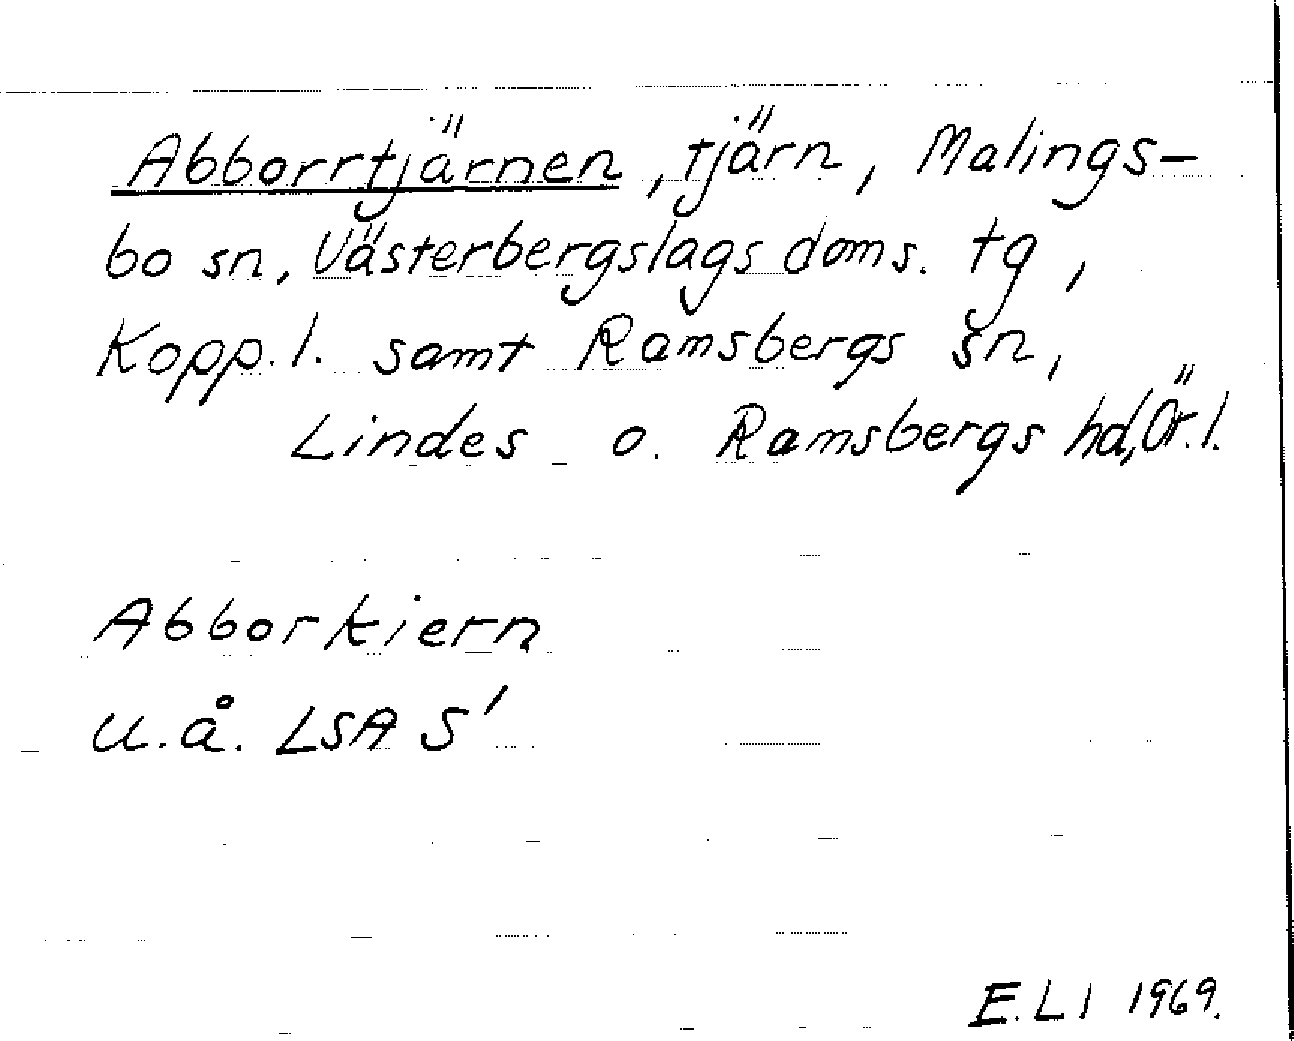 Abborrtjärnen, tjärn, Malings-
bo sn, Västerbergslags doms. tg,
Kopp. l. samt Ramsbergs sn,
Lindes o. Ramsbergs hd, Ör. l.
Abborkiern
u.å. LSA S'
E. Ll 1969.